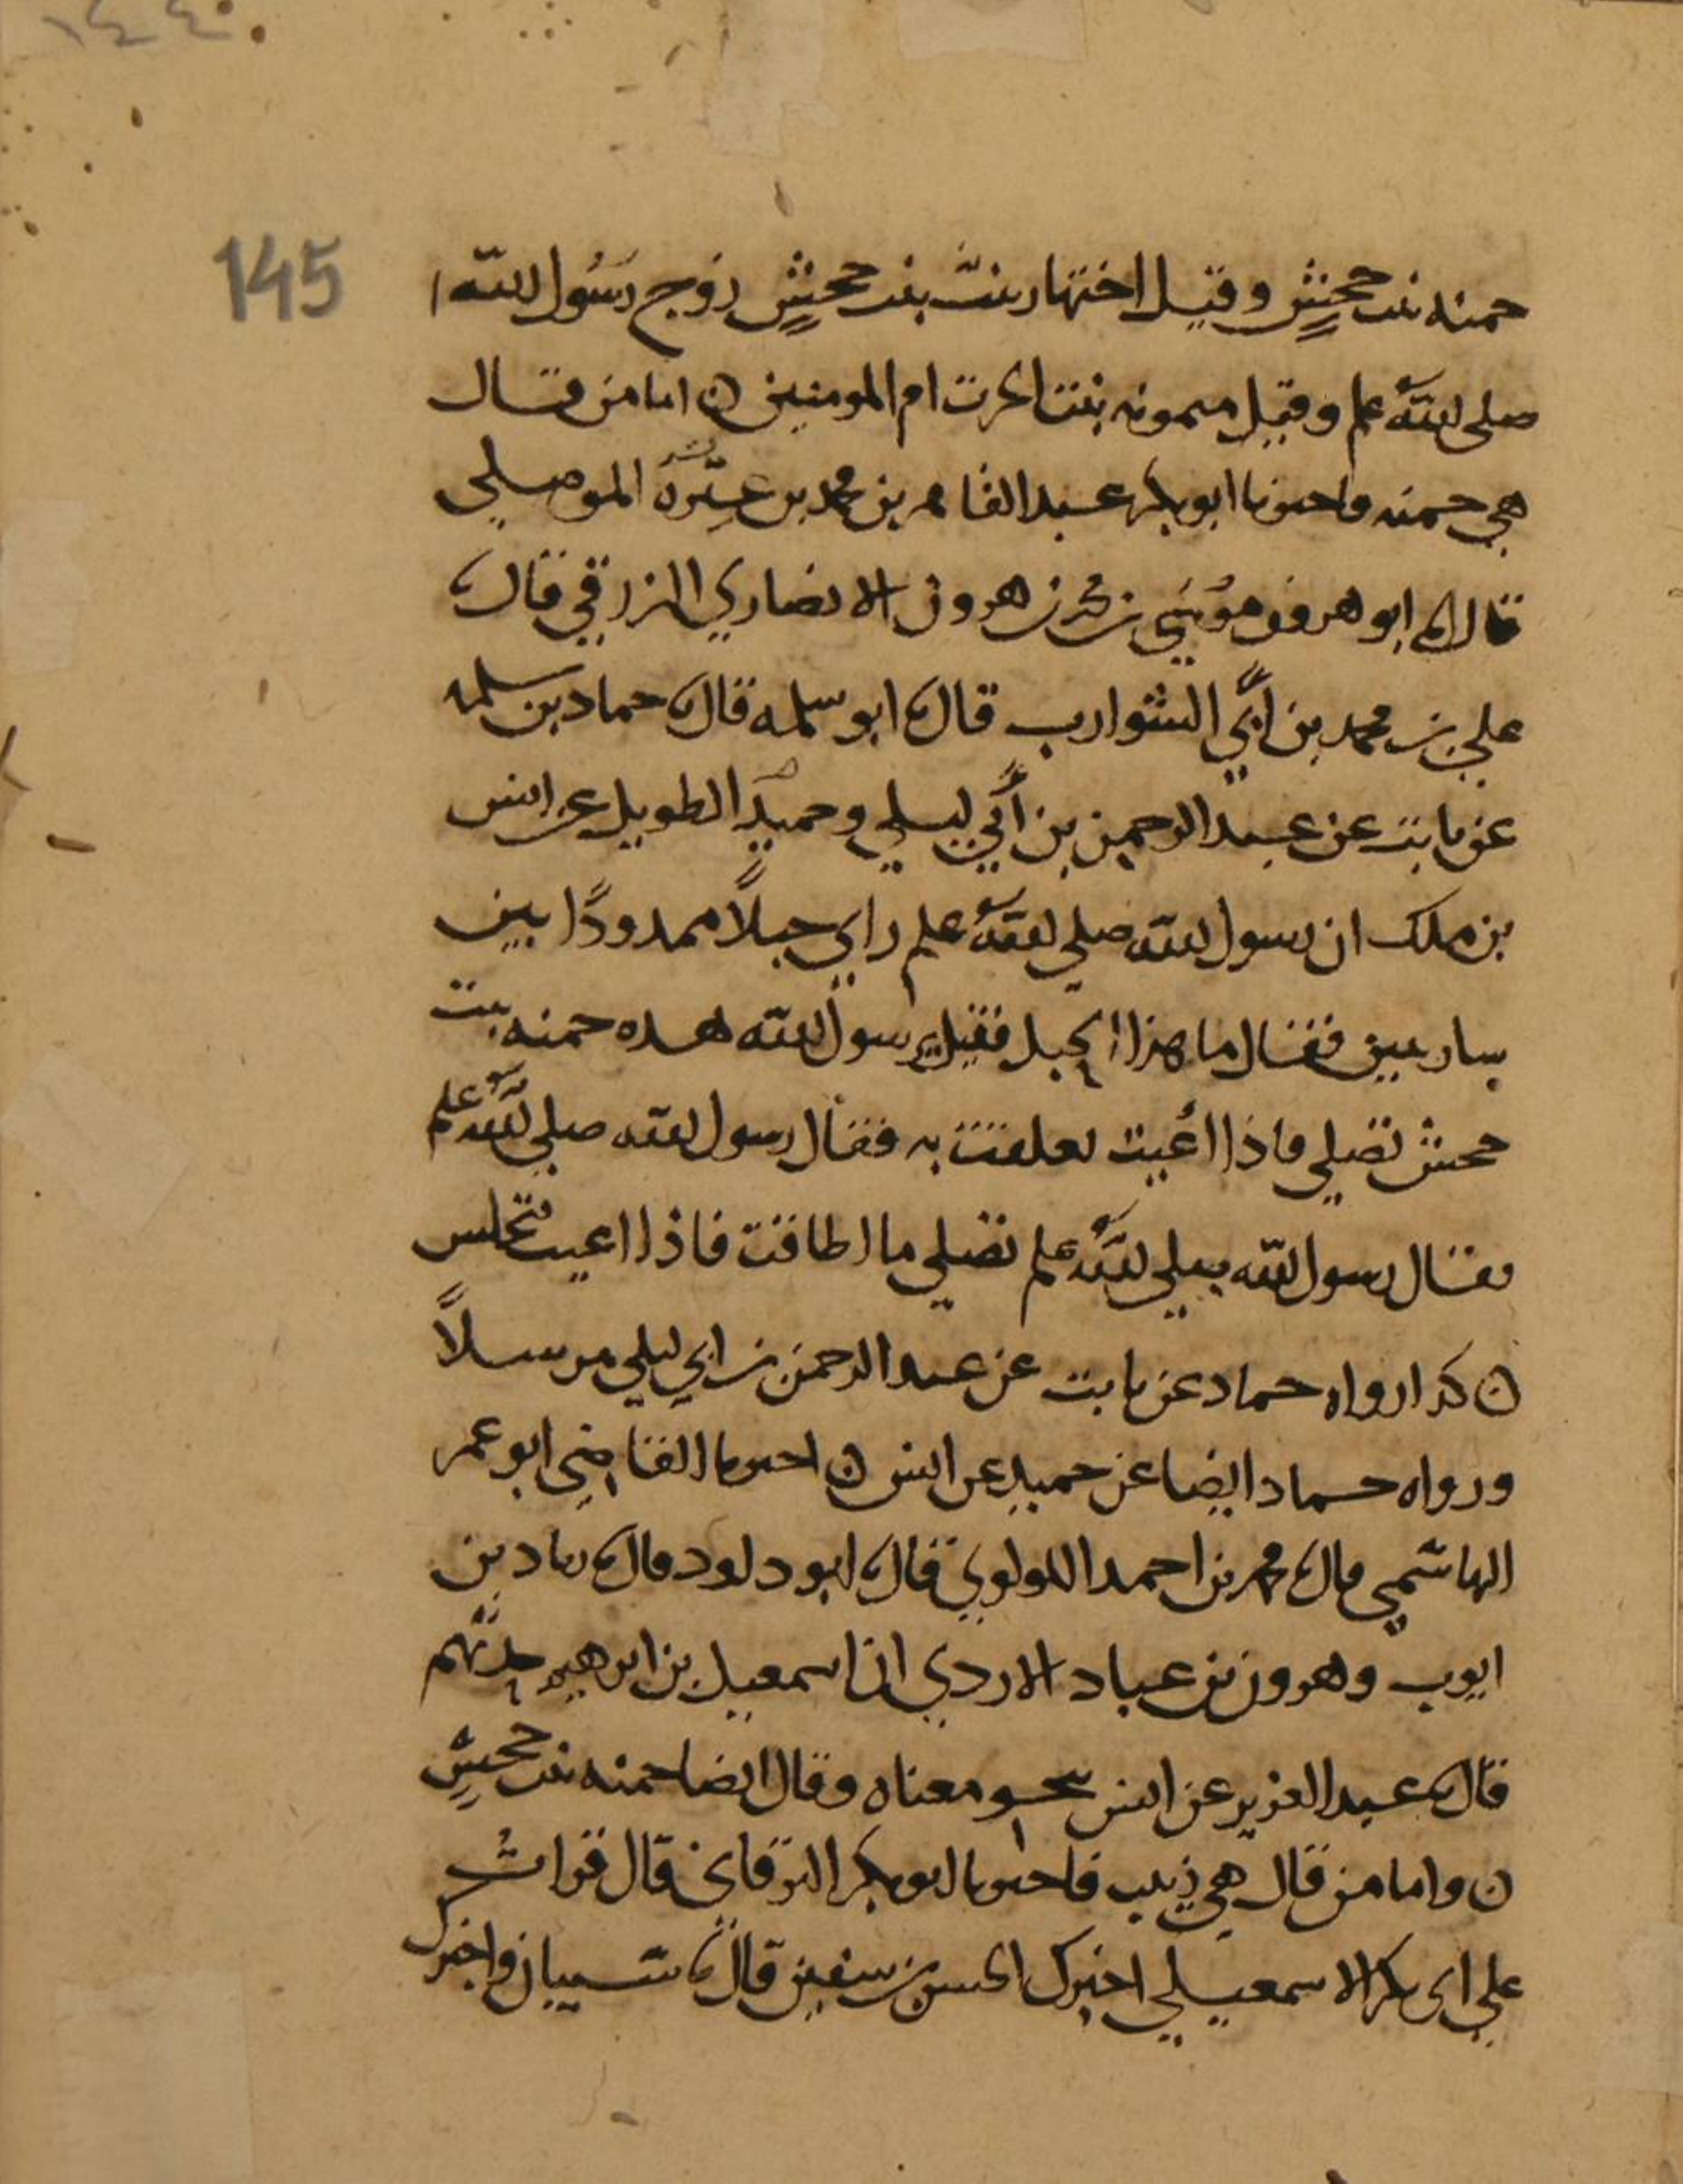 ١٤٤
145
حمنه بنت جحش وقيل اختها زينب بنت جحش زوج رسول الله
صلى الله علم وقيل ميمونه بنت الحرث ام المومنين ن اما من قال
هي حمنه فاخبرنا ابو بكر عبد القاهر بن محمد بن عترة الموصلي
قال ابو هرون موسى بن محمد بن هرون الانصاري الزرقي قال
علي بن محمد بن أبي الشوارب قال ابو سلمه قال حماد بن سلمه
عن ثابت عن عبد الرحمن بن أبي ليلي وحميد الطويل عن انس
بن ملك ان رسول الله صلي الله علم راي حبلاً ممدودًا بين
ساريتين فقال ما هذا الحبل فقيل يرسول الله هذه حمنه بنت
جحش تصلي فاذا أعيت تعلقت به فقال رسول الله صلي الله علم
فقال رسول الله صلي الله علم تصلي ما اطاقت فاذا اعيت فتجلس
ن كذا رواه حماد عن ثابت عن عبد الرحمن بن ابي ليلي مرسلاً
ورواه حماد ايضا عن حميد عن انس ن اخبرنا القاضي ابو عمر
الهاشمي قال محمد بن احمد اللولوي قال ابو داود قال زياد بن
ايوب وهرون بن عباد الازدي ان اسمعيل بن ابرهيم حدثهم
قال عبد العزيز عن انس بنحو معناه وقال ايضا حمنه بنت جحش
ن واما من قال هي زينب فاخبرنا ابو بكر البرقاني قال قرات
علي ابي بكر الاسمعيلي اخبرك الحسن بن سفين قال شيبان واخبرك